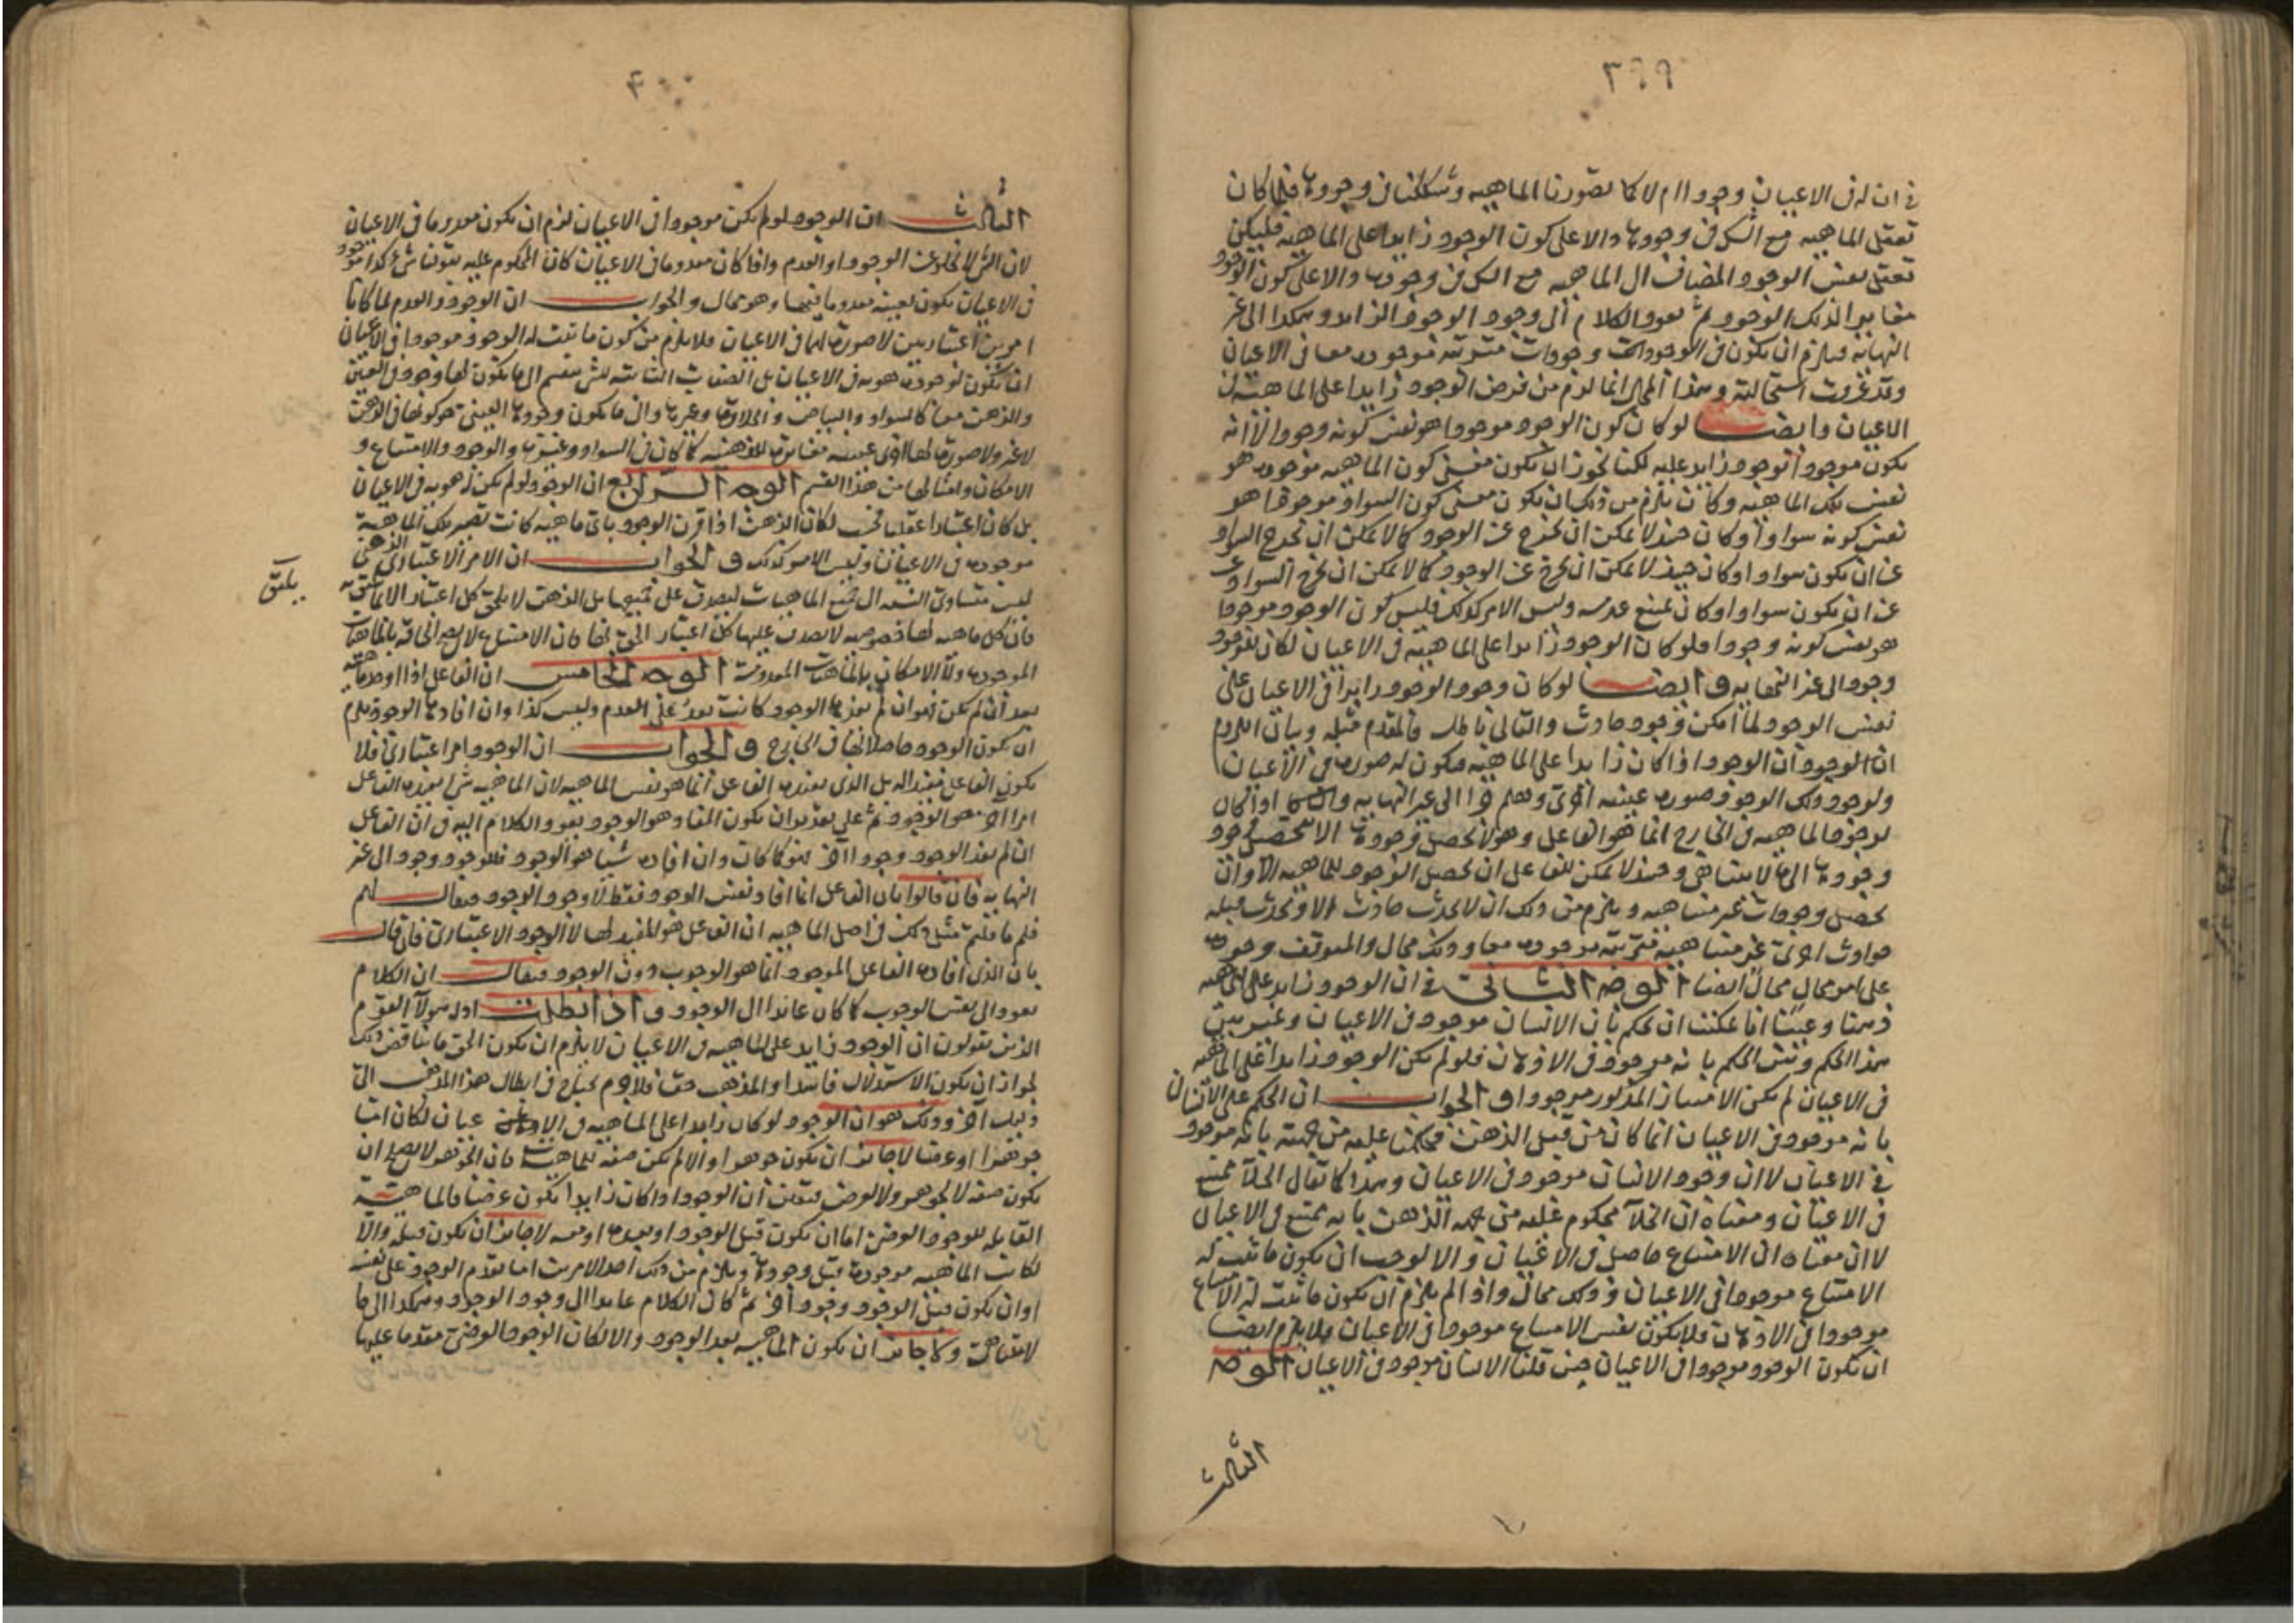 ٣٩٩
في ان له في الاعيان وجودا ام لا كما تصورنا الماهيه وشككنا في وجودها فلما كان
تعقل الماهيه مع الشك في وجودها دالا على كون الوجود زايدا على الماهيه فليكن
تعقل نفس الوجود المضاف الى الماهيه مع الشك في وجودها دالا على كون الوجود
مغايرا لذلك الوجود ثم يعود الكلام الى وجود الوجود الزايد وهكذا الى غير
النهايه فيلزم ان يكون في الوجودات وجودات مترتبه موجوده معا في الاعيان
وقد عرفت استحالته وهذا المحال انما لزم من فرض الوجود زايدا على الماهيه في
الاعيان وايضا لو كان كون الوجود موجودا هو نفس كونه وجودا لا انه
يكون موجودا لوجود زايد عليه لكنا نجوز ان يكون معنى كون الماهيه موجوده هو
نفس تلك الماهيه وكان يلزم من ذلك ان يكون معنى كون السواد موجودا هو
نفس كونه سوادا وكان حينئذ لا يمكن ان يخرج عن الوجود كما لا يمكن ان يخرج السواد
عن ان يكون سوادا وكان حينئذ لا يمكن ان يخرج عن الوجود كما لا يمكن ان يخرج السواد عن
عن ان يكون سوادا وكان يمتنع عدمه وليس الامر كذلك فليس كون الوجود موجودا
هو نفس كونه وجودا فلو كان الوجود زايدا على الماهيه في الاعيان لكان للوجود
وجود الى غير النهايه وايضا لو كان وجود الوجود زايدا في الاعيان على
نفس الوجود لما امكن وجود حادث والتالي باطل فالمقدم مثله وبيان اللزوم
ان الوجود ان الوجود اذا كان زايدا على الماهيه فيكون له صوره في الاعيان
ولوجود ذلك الوجود صوره عينيه اخرى وهلم جرا الى غير النهايه واذا كان
لوجود الماهيه في الخارج انما هو الفاعل وهو لا يحصل وجودها الا بتحصيل وجود
وجودها الى ما لا يتناهى وحينئذ لا يمكن للفاعل ان يحصل الوجود للماهيه الا وان
يحصل وجودات غير متناهيه ويلزم من ذلك ان لا يحدث حادث الا ويحدث قبله
حوادث اخرى غير متناهيه مترتبه موجوده معا وذلك محال والمتوقف وجوده
على امر محال محال ايضا الوجه الثاني في ان الوجود زايد على الماهيه
ذهنا وعينا انا يمكننا ان نحكم بان الانسان موجود في الاعيان وغير بين
هذا الحكم وبين الحكم بانه موجود في الاذهان فلو لم يكن الوجود زايدا على الماهيه
في الاعيان لم يكن الامتياز المذكور موجودا والجواب ان الحكم على الانسان
بانه موجود في الاعيان انما كان من قبل الذهن فحكمنا عليه من جهته بانه موجود
في الاعيان لا ان وجود الانسان موجود في الاعيان وهذا كما يقال الخلاء ممتنع
في الاعيان ومعناه ان الخلاء محكوم عليه من جهه الذهن بانه ممتنع في الاعيان
لا ان معناه ان الامتناع حاصل في الاعيان والا لوجب ان يكون ما يثبت له
الامتناع موجودا في الاعيان وذلك محال واذا لم يلزم ان يكون ما يثبت له الامتناع
موجودا في الاذهان فلا يكون نفس الامتناع موجودا في الاعيان فلا يلزم ايضا
ان يكون الوجود موجودا في الاعيان حين قلنا الانسان موجود في الاعيان الوجه
الثالث
٤٠٠
الثالث ان الوجود لو لم يكن موجودا في الاعيان لزم ان يكون معدوما في الاعيان
لان الشي لا يخلو عن الوجود او العدم واذا كان معدوما في الاعيان كان المحكوم عليه بقولنا شي كذا موجود
في الاعيان يكون بعينه معدوما فيها وهو محال والجواب ان الوجود والعدم لما كانا
امرين اعتباريين لا صوره لهما في الاعيان فلا يلزم من كون ما يثبت له الوجود موجودا في الاعيان
ان يكون لوجوده هويه في الاعيان بل الصفات الثابته لشي ينقسم الى ما يكون لها وجود في العين
والذهن معا كالسواد والبياض والحلاوه وغيرها والى ما يكون وجودها العيني هو كونها في الذهن
لا غير ولا صوره لها اخرى عينيه مغايره للذهنيه كما كان في السواد وغيره والوجود والامتناع و
الامكان وامثالها من هذا القسم الوجه الرابع ان الوجود لو لم يكن له هويه في الاعيان
بل كان اعتبارا عقليا لكان الذهن اذا قرن الوجود باي ماهيه كانت تصير تلك الماهيه
موجوده في الاعيان وليس الامر كذلك والجواب ان الامر الاعتباري الذهني
ليس متساوي النسبه الى جميع الماهيات ليصدق على جميعها بل الذهن لا يلحق كل اعتبار الا بما يليق به
يلحق
فان كل ماهيه لها خصوصيه لا يصدق عليها كل اعتبار الحق بها فان الامتناع لا يصح الحاقه بالماهيات
الموجوده ولا الامكان بالماهيات المعدومه الوجه الخامس ان الفاعل اذا اوجد ماهيه
بعد ان لم تكن فهو ان لم يفدها الوجود كانت بعد على العدم وليس كذا وان افادها الوجود يلزم
ان يكون الوجود حاصلا لها في الخارج والجواب ان الوجود امر اعتباري فلا
يكون الفاعل مفيدا له بل الذي يفيده الفاعل انما هو نفس الماهيه لان الماهيه شي يفيده الفاعل
امرا آخر هو الوجود ثم على تقدير ان يكون المفاد هو الوجود يعود الكلام اليه في ان الفاعل
ان لم يفد الوجود وجودا آخر فهو كما كان وان افاده شيئا هو الوجود فللوجود وجود الى غير
النهايه فان قالوا بان الفاعل انما افاد نفس الوجود فقط لا وجود الوجود فيقال لهم
فلم ما قلتم مثل ذلك في اصل الماهيه ان الفاعل هو المفيد لها لا الوجود الاعتباري فان قال
بان الذي افاده الفاعل الموجود انما هو الوجوب دون الوجود فيقال ان الكلام
يعود الى نفس الوجوب كما كان عائدا الى الوجود واذا بطلت ادله هولاء القوم
الذين يقولون ان الوجود زايد على الماهيه في الاعيان لا يلزم ان يكون الحق ما يناقض ذلك
لجواز ان يكون الاستدلال فاسدا والمذهب حق فلا جرم نحتاج في ابطال هذا المذهب الى
دليل آخر وذلك هو ان الوجود لو كان زايدا على الماهيه في الاعيان لكان اما
جوهرا او عرضا لا جائز ان يكون جوهرا والا لم يكن صفه للماهيه فان الجوهر لا يصلح ان
يكون صفه لا لجوهر ولا لعرض فتعين ان الوجود اذا كان زايدا يكون عرضا فالماهيه
القابله للوجود العرضي اما ان يكون قبل الوجود او بعده او معه لا جائز ان يكون قبله والا
لكانت الماهيه موجوده قبل وجودها ويلزم من ذلك احد الامرين اما تقدم الوجود على نفسه
او ان يكون قبل الوجود وجود آخر ثم كان الكلام عايدا الى وجود الوجود وهكذا الى ما
لا يتناهى ولا جائز ان يكون الماهيه بعد الوجود والا لكان الوجود العرضي مقدما عليها